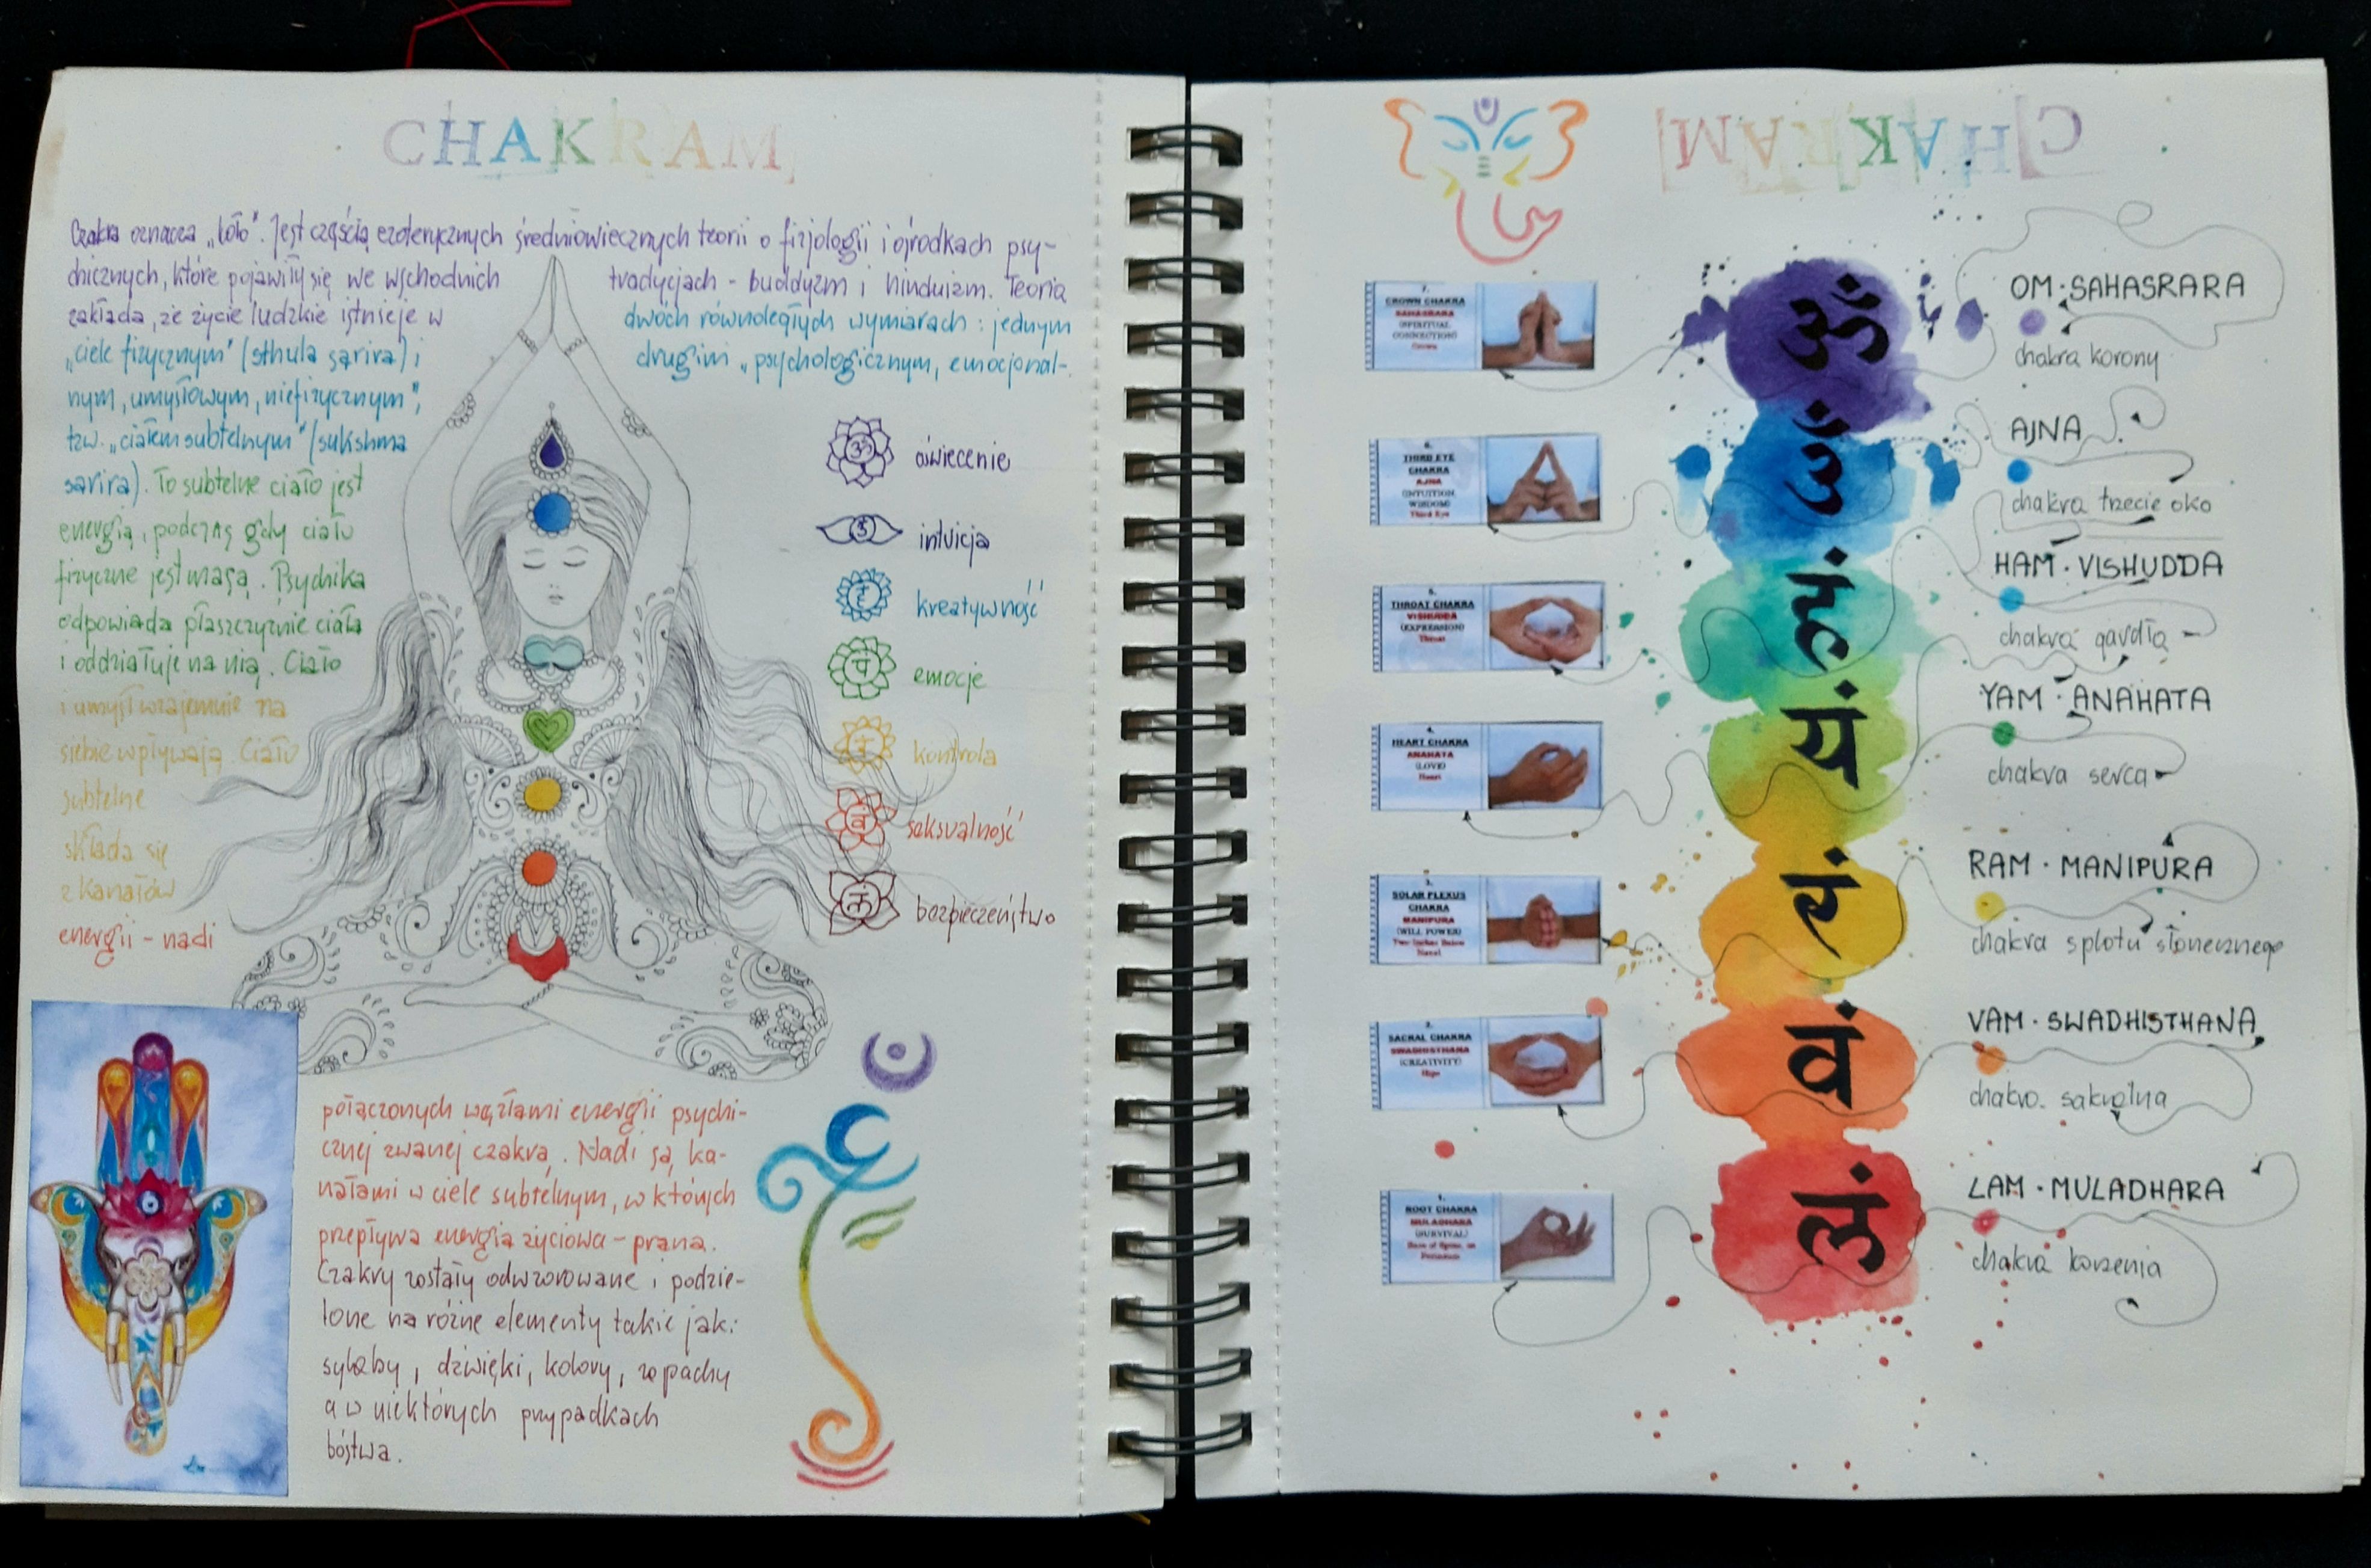 CHAKRAM
Czakra oznacza „koło". Jest częścią ezoterycznych średniowiecznych teorii o fizjologii i ośrodkach psy-
chicznych, które pojawiły się we wschodnich tradycjach - buddyzm i hinduizm. Teoria
zakłada, że życie ludzkie istnieje w dwóch równoległych wymiarach: jednym
„ciele fizycznym" (sthula sarira) i drugim „psychologicznym, emocjonal-
nym, umysłowym, niefizycznym",
tzw. „ciałem subtelnym" (sukshma
sarira). To subtelne ciało jest
energią, podczas gdy ciało
fizyczne jest masą. Psychika
odpowiada płaszczyźnie ciała
i oddziałuje na nią. Ciało
i umysł wzajemnie na
siebie wpływają. Ciało
subtelne
składa się
z kanałów
energii - nadi
połączonych węzłami energii psychi-
cznej zwanej czakrą. Nadi są ka-
nałami w ciele subtelnym, w których
przepływa energia życiowa - prana.
Czakry zostały odwzorowane i podzie-
lone na różne elementy takie jak:
sylaby, dźwięki, kolory, zapachy
a w niektórych przypadkach
bóstwa.
ॐ oświecenie
intuicja
kreatywność
emocje
kontrola
वं seksualność
लं bezpieczeństwo
CHAKRAM
7.
CROWN CHAKRA
SAHASRARA
(SPIRITUAL
CONNECTION)
Crown
ॐ
OM · SAHASRARA
chakra korony
6.
THIRD EYE
CHAKRA
AJNA
(INTUITION,
WISDOM)
Third Eye
ॐ
AJNA
chakra trzecie oko
5.
THROAT CHAKRA
VISHUDDA
(EXPRESSION)
Throat
हं
HAM · VISHUDDA
chakra gardła
4.
HEART CHAKRA
ANAHATA
(LOVE)
Heart
यं
YAM · ANAHATA
chakra serca
3.
SOLAR PLEXUS
CHAKRA
MANIPURA
(WILL POWER)
Two Inches Below
Navel
रं
RAM · MANIPURA
chakra splotu słonecznego
2.
SACRAL CHAKRA
SWADHISTHANA
(CREATIVITY)
वं
VAM · SWADHISTHANA
chakra sakralna
1.
ROOT CHAKRA
MULADHARA
(SURVIVAL)
Base of Spine, or
Perineum
लं
LAM · MULADHARA
chakra korzenia